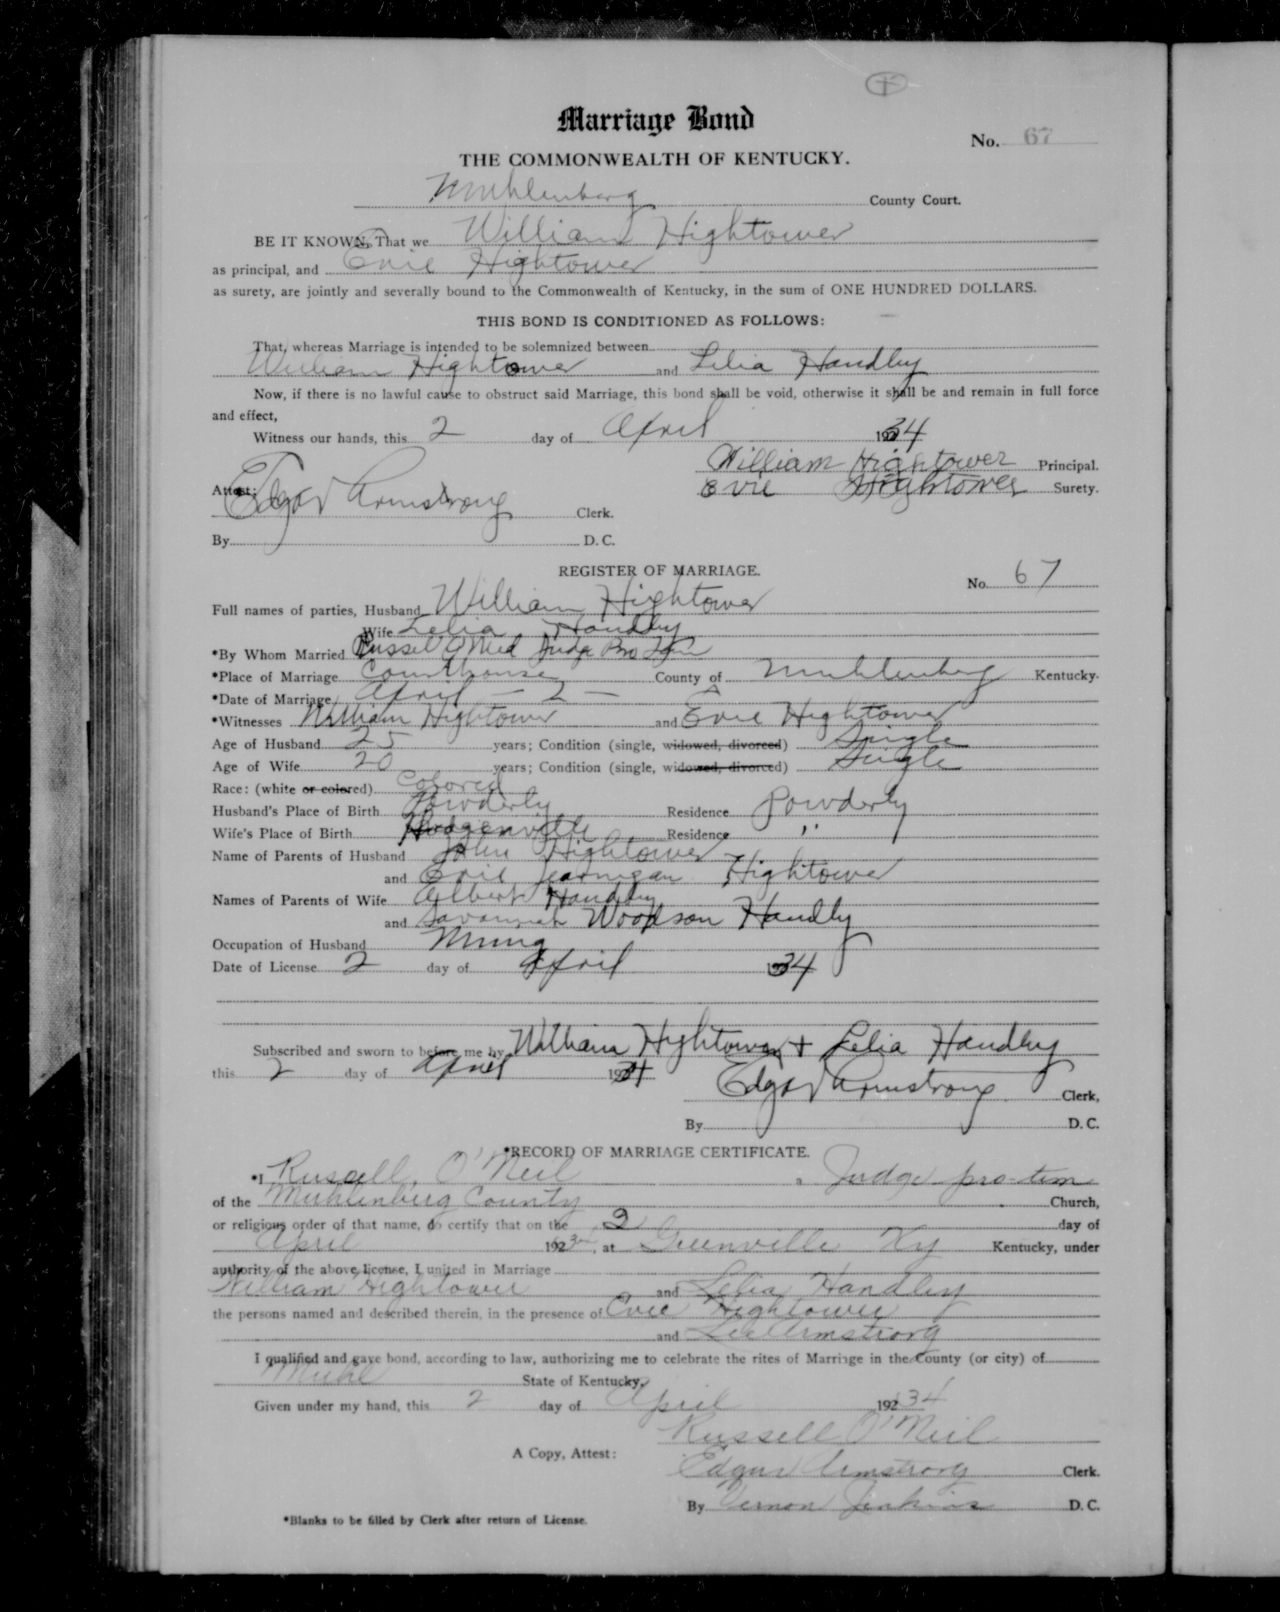 Marriage Bond
No. 67
THE COMMONWEALTH OF KENTUCKY.
Muhlenberg County Court.
BE IT KNOWN, That we William Hightower
as principal, and Evie Hightower
as surety, are jointly and severally bound to the Commonwealth of Kentucky, in the sum of ONE HUNDRED DOLLARS.
THIS BOND IS CONDITIONED AS FOLLOWS:
That, whereas Marriage is intended to be solemnized between
William Hightower and Lelia Handley
Now, if there is no lawful cause to obstruct said Marriage, this bond shall be void, otherwise it shall be and remain in full force
and effect,
Witness our hands, this 2 day of April 1934
William Hightower Principal.
Evie Hightower Surety.
Attest: Edgar Armstrong Clerk.
By D. C.
REGISTER OF MARRIAGE.
No. 67
Full names of parties, Husband William Hightower
Wife Lelia Handley
*By Whom Married Russel O'Neil Judge Pro Tem
*Place of Marriage Courthouse County of Muhlenberg Kentucky.
*Date of Marriage April - 2 -
*Witnesses William Hightower and Evie Hightower
Age of Husband 25 years; Condition (single, widowed, divorced) Single
Age of Wife 20 years; Condition (single, widowed, divorced) Single
Race: (white or colored) Colored
Husband's Place of Birth Powderly Residence Powderly
Wife's Place of Birth Hodgenville Residence "
Name of Parents of Husband John Hightower
and Evie Jearnigan Hightower
Names of Parents of Wife Albert Handley
and Savannah Woodson Handly
Occupation of Husband Mining
Date of License 2 day of April 34
Subscribed and sworn to before me by William Hightower + Lelia Handley
this 2 day of April 1934
Edgar Armstrong Clerk,
By D. C.
*RECORD OF MARRIAGE CERTIFICATE.
*I Russell O'Neil, a Judge pro-tem
of the Muhlenberg County Church,
or religious order of that name, do certify that on the 2 day of
April 1923 34, at Greenville Ky Kentucky, under
authority of the above license, I united in Marriage
William Hightower and Lelia Handley
the persons named and described therein, in the presence of Evie Hightower
and Lee Armstrong
I qualified and gave bond, according to law, authorizing me to celebrate the rites of Marriage in the County (or city) of
Muhl State of Kentucky.
Given under my hand, this 2 day of April 192 34
Russell O'Neil
A Copy, Attest:
Edgar Armstrong Clerk.
By Vernon Jenkins D. C.
*Blanks to be filled by Clerk after return of License.